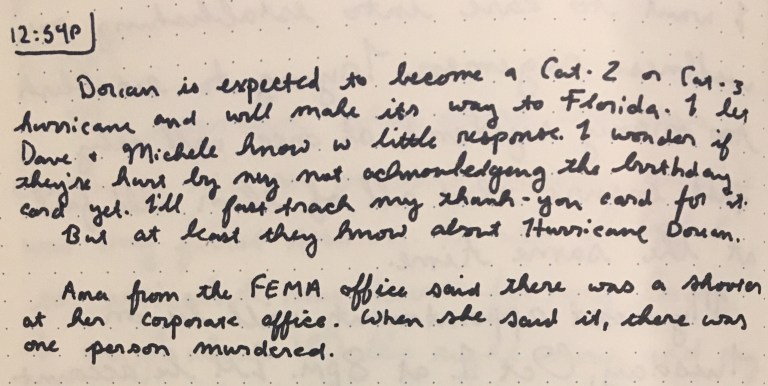 12:54P
Dorian is expected to become a Cat. 2 or Cat. 3
hurricane and will make its way to Florida. I let
Dave + Michele know w little response. I wonder if
they're hurt by my not acknowledgeng the birthday
card yet. I'll fast track my thank-you card for it.
But at least they know about Hurricane Dorian.
Ana from the FEMA office said there was a shooter
at her corporate office. When she said it, there was
one person murdered.